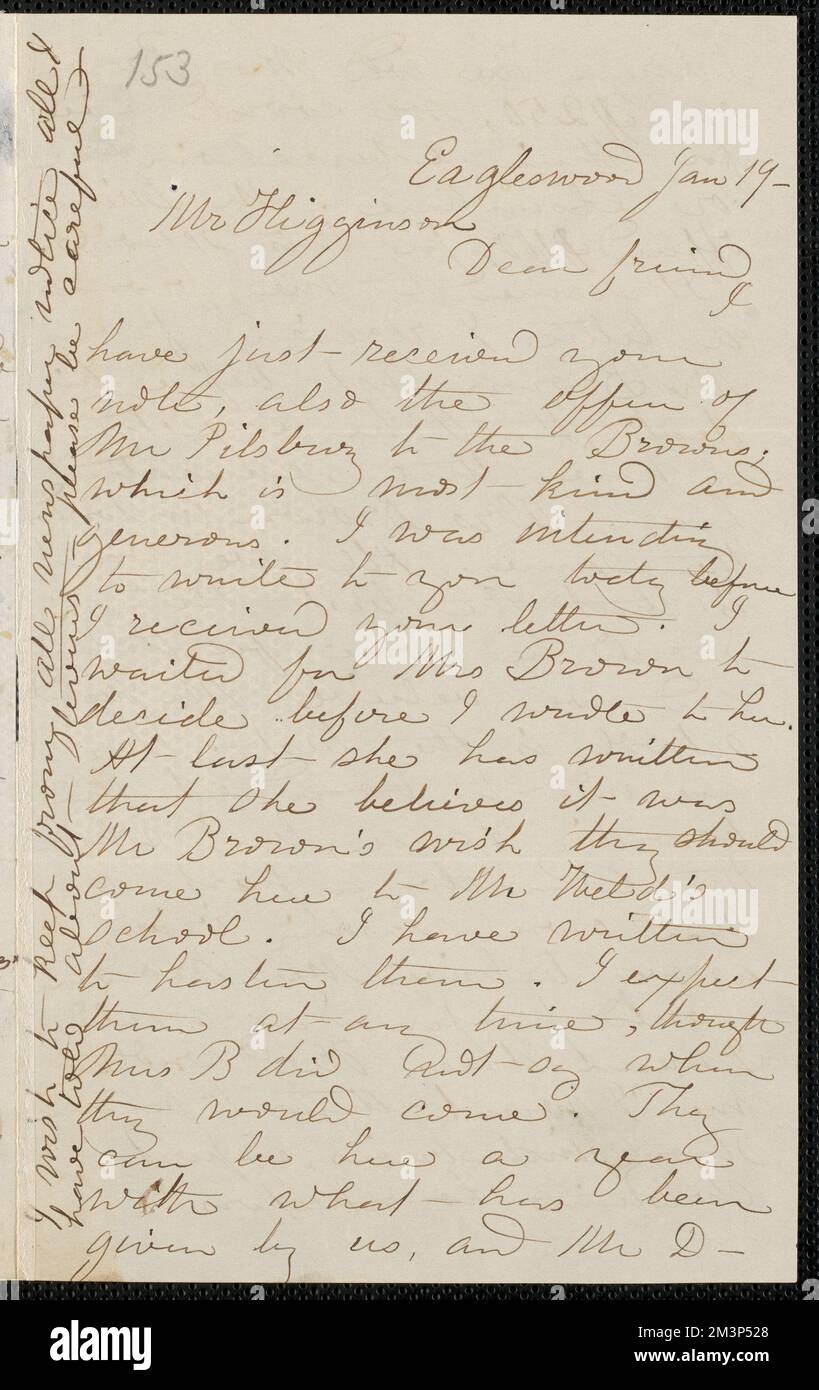 153
Eagleswood Jan 19-
Mr Higginson
Dear friend
I
have just received your
note, also the offer of
Mr Pilsbury to the Browns,
which is most kind and
generous. I was intending
to write to you today before
I received your letter. I
waited for Mrs Brown to
decide before I wrote to her.
At last she has written
that she believes it was
Mr Brown's wish they should
come here to Mr Weld's
school. I have written
to hasten them. I expect
them at any time, though
Mrs B did not say when
they would come. They
can be here a year
with what has been
given by us, and Mr D-
I wish to keep from all newspaper notice all I
have told about - please be careful
alamy
Image ID: 2M3P528
www.alamy.com